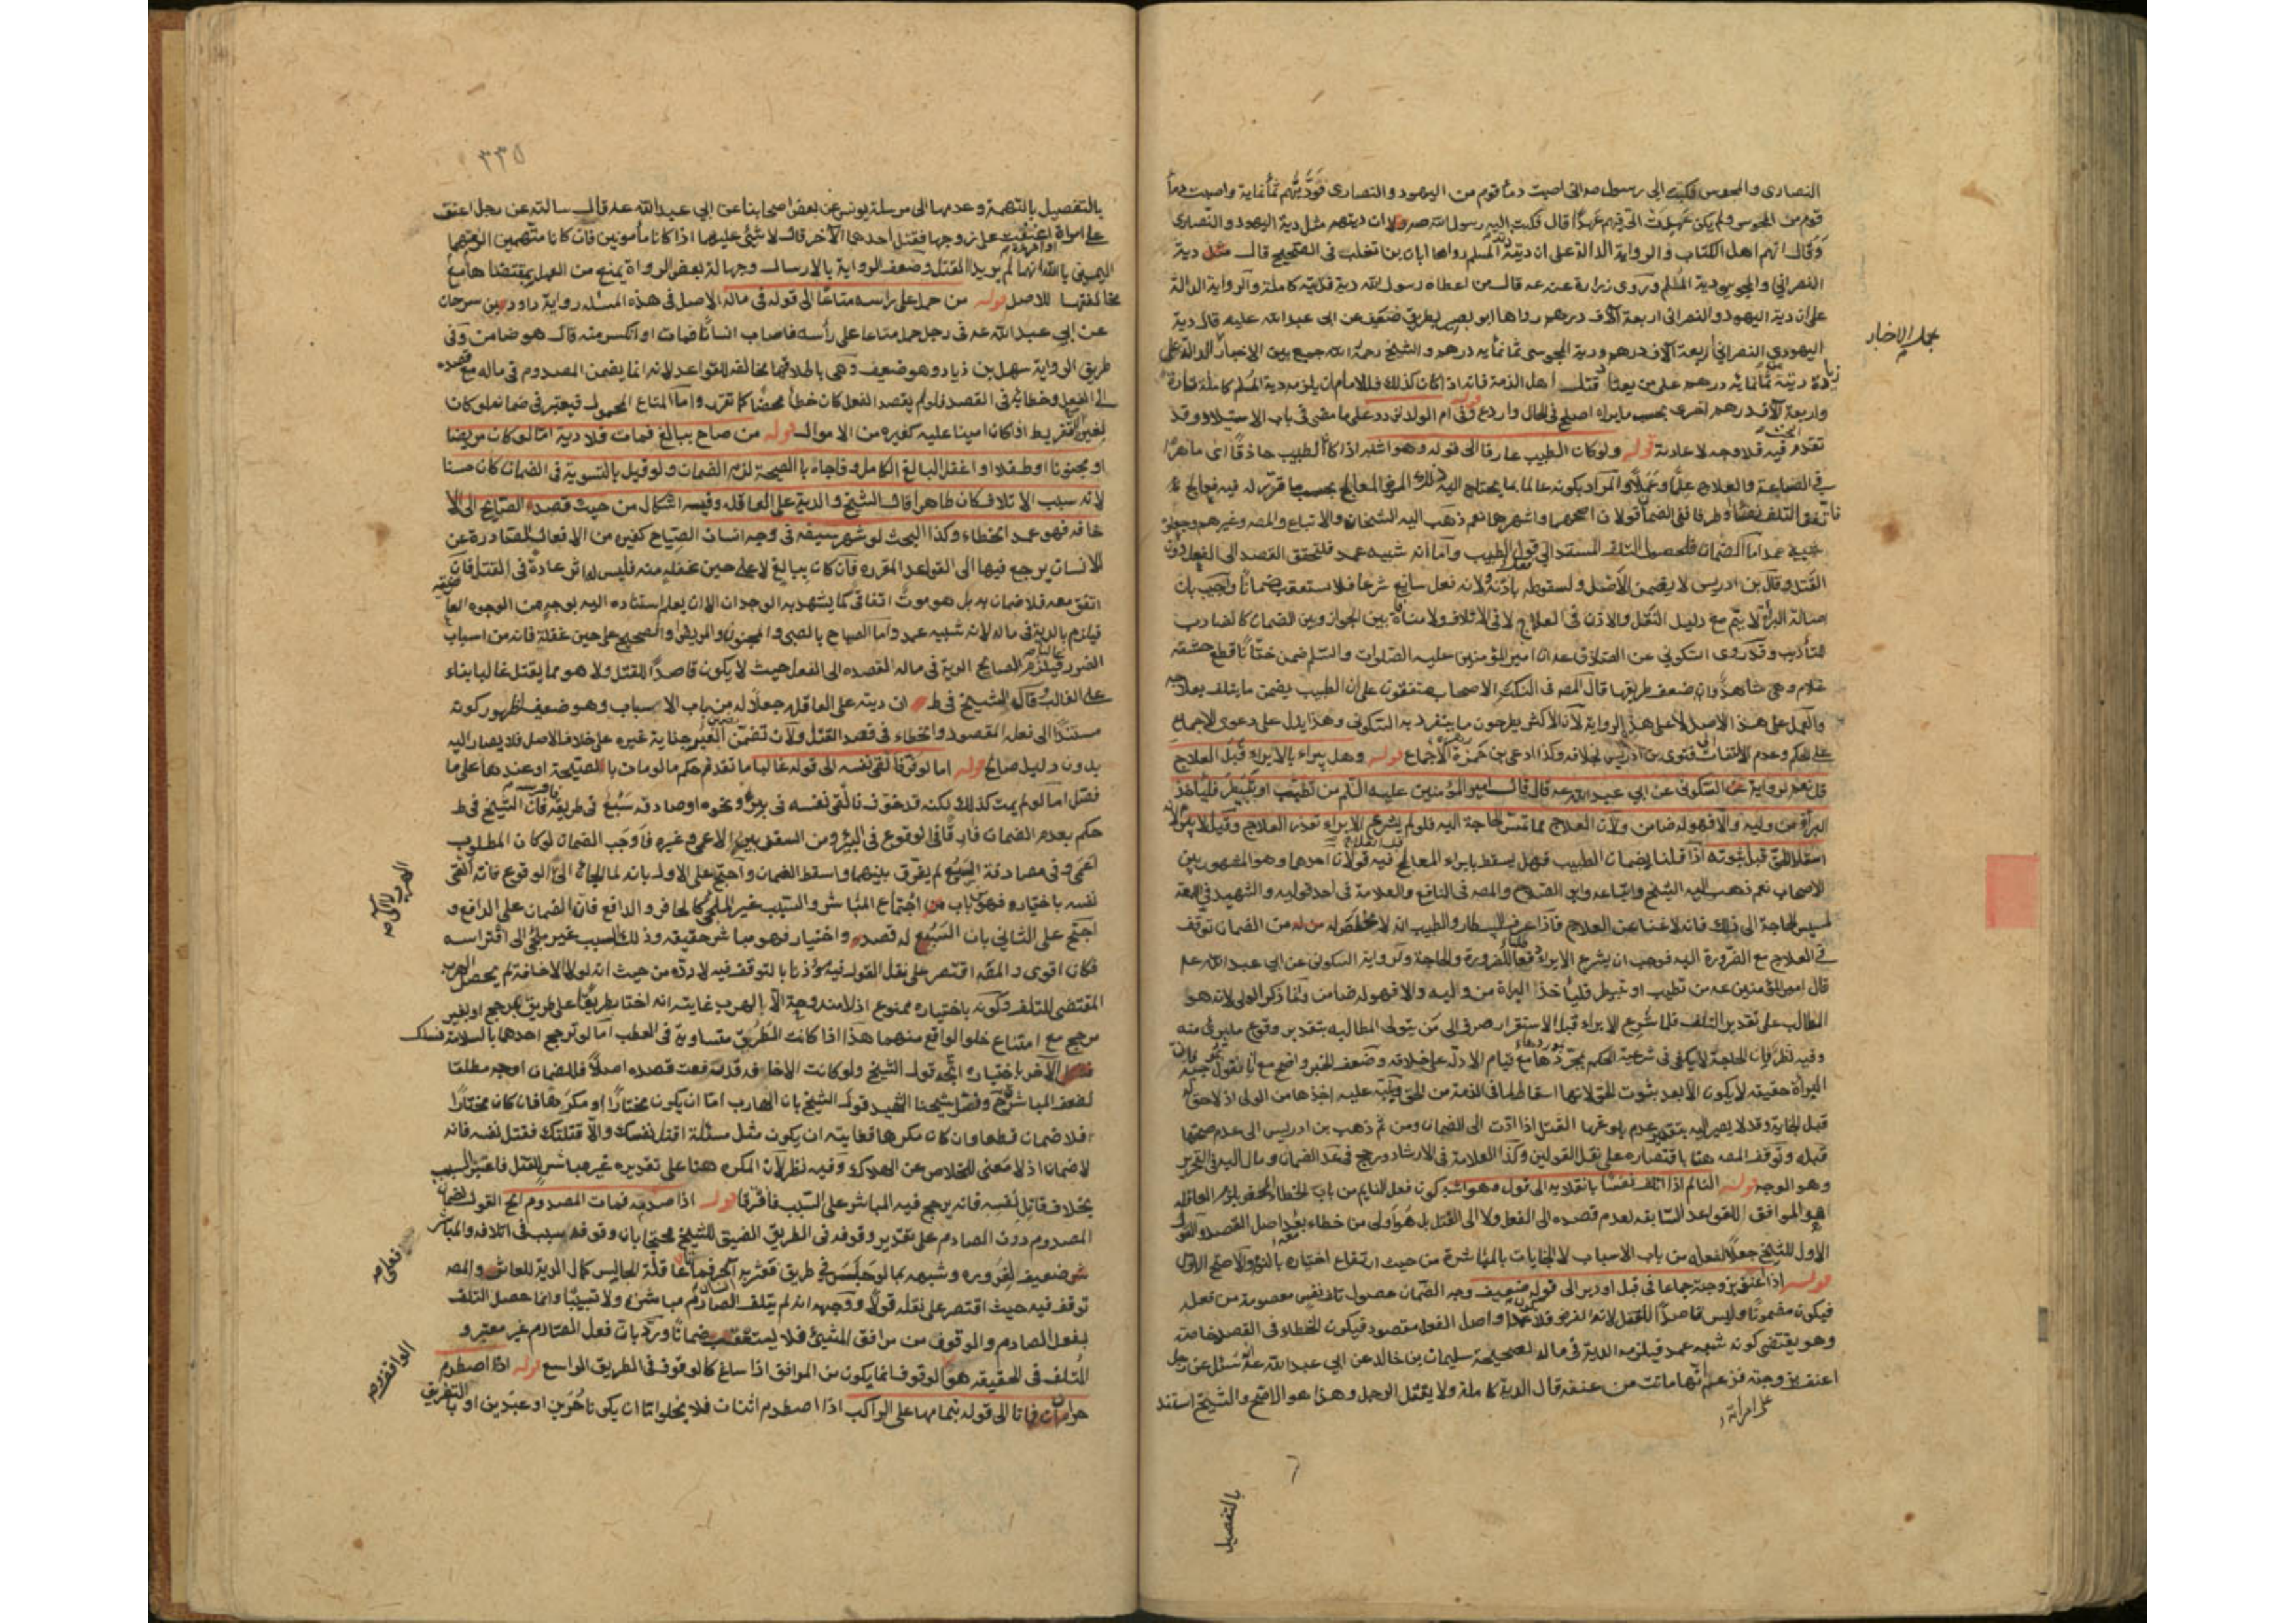 النصارى والمجوس فكتب الى رسول صه انى اصبت دماء قوم من اليهود والنصارى فوديتهم ثمانمائة واصبت دماء
قوم من المجوس ولم يكن عهدت الى فيهم عهدا قال فكتب اليه رسول الله صه ان ديتهم مثل دية اليهود والنصارى
وقال انهم اهل الكتاب والرواية الدالة على ان ديته المسلم رواها ابان بن تغلب فى الصحيح قال مثل دية
النصرانى والمجوسى دية المسلم وروى زرارة عنه عه قال من اعطاه رسول الله دية فديته كاملة والرواية الدالة
على ان دية اليهود والنصرانى اربعة آلاف درهم رواها ابو بصير بطريق ضعيف عن ابى عبدالله عليه قال دية
اليهودى النصرانى اربعة آلاف درهم ودية المجوسى ثمانمايه درهم والشيخ رحمه الله جمع بين الاخبار الدالة على
بجل الاخبار
زيادة ديته ثمانمائه درهم على من يعتاد قتل اهل الذمة فانه اذا كان كذلك فللامام ان يلزمه دية المسلم كاملة تارة
واربعة آلاف درهم اخرى بحسب مايراه اصلح فى الحال واردع قوله وفى ام الولد تردد على ما مضى فى باب الاستيلاد وقد
تقدم البحث فيه فلا وجه لاعادته قوله ولو كان الطبيب عارفا الى قوله وهو اشبه اذا كان الطبيب حاذقا اى ماهرا
فى الصناعة والعلاج علما وعملا والمراد بكونه عالما بما يحتاج اليه ذلك المرض المعالج بحسب ما قرر له فيه فعالج
فاتفق التلف نفسا او طرفا ففى الضمان قولان اصحهما واشهرهما نعم ذهب اليه الشيخان والاتباع والمصه وغيرهم وجعلوه
شبيه عمد اما الضمان فلحصول التلف المستند الى فعل الطبيب واما انه شبيه عمد فلتحقق القصد الى الفعل دون
القتل وقال بن ادريس لا يضمن للاصل ولسقوطه باذنه ولانه فعل سايغ شرعا فلا يستعقب ضمانا واجيب بان
اصالة البرأة لا يتم مع دليل النقل والاذن فى العلاج لا فى الاتلاف ولا منافاة بين الجواز وبين الضمان كالضارب
للتأديب وقد روى السكونى عن الصادق عه ان امير المؤمنين عليه الصلوات والسلم ضمن ختانا قطع حشفة
غلام وهى شاهد وان ضعف طريقها قال المصه فى النكت الاصحاب متفقون على ان الطبيب يضمن ما يتلف بعلاجه
والعمل على هذا الاصل لا على هذه الرواية لان الاكثر يطرحون ما يتفرد به السكونى وهذا يدل على دعوى الاجماع
على الحكم وعدم الالتفات الى فتوى بن ادريس بخلافه وكذا ادعى بن حمزة الاجماع قوله وهل يبراء بالابراء قبل العلاج
قيل نعم لرواية السكونى عن ابى عبدالله عه قال قال امير المؤمنين عليه السلم من تطبب او تبيطر فلياخذ
البرأة من وليه والا فهو له ضامن ولان العلاج مما تمس الحاجة اليه فلو لم يشرع الابراء تعذر العلاج وقيل لا يبرا لانه
اسقاط الحق قبل ثبوته اذا قلنا بضمان الطبيب فهل يسقط بابراء المعالج قبل العلاج فيه قولان احدهما وهو المشهور بين
الاصحاب نعم ذهب اليه الشيخ واتباعه وابو الصلاح والمصه فى النافع والعلامة فى احد قوليه والشهيد فى اللمعة
لمسيس الحاجة الى ذلك فانه لا غنا عن العلاج فاذا عرف البيطار والطبيب انه لا مخلص له من الضمان توقف
فى العلاج مع الضرورة اليه فوجب ان يشرع الابراء دفعا للضرورة والحاجة ولرواية السكونى عن ابى عبد الله عه
قال امير المؤمنين عه من تطبب او تبيطر فليأخذ البراة من وليه والا فهو له ضامن وانما ذكر الولى لانه هو
المطالب على تقدير التلف فلما شرع الابراء قبل الاستقرار صرف الى من يتولى المطالبه بتقدير وقوع ما يبرئ منه
وفيه نظر فان الحاجة لا يكفى فى شرعية الحكم بمجردها مع قيام الادلة على خلافه وضعف الخبر واضح مع انا نقول بموجبه فان
البرأة حقيقه لا يكون الا بعد ثبوت الحق لانها اسقاط لما فى الذمة من الحق وينبه عليه اخذها من الولى اذ لا حق له
قبل الجناية وقد لا يصير اليه بتقدير عدم بلوغها القتل اذا ادت الى الضمان ومن ثم ذهب بن ادريس الى عدم صحتها
قبله وتوقف المصه هنا باقتصاره على نقل القولين وكذا العلامة فى الارشاد ورجح فى عد الضمان ومال اليه فى التحرير
وهو الوجه قوله النائم اذا اتلف نفسا بانقلابه الى قوله وهو اشبه كون فعل النايم من باب الخطاء المحض يلزم العاقله
هو الموافق للقواعد السابقه لعدم قصده الى الفعل ولا الى القتل بل هو اولى من خطاء بعد اصل القصد والقول
الاول للشيخ جعلا لفعله من باب الاسباب لا الجنايات بالمباشرة من حيث ارتفاع اختياره بالنوم والاصح الاول
قوله اذا اعنف بزوجته جماعا فى قبل او دبر الى قوله ضعيف وجه الضمان حصول تلف نفس معصومة من فعله
فيكون مضمونا وليس قاصدا للقتل لانه الفرض فلا يكون عمدا واصل الفعل مقصود فيكون الخطاء فى القصد خاصة
وهو يقتضى كونه شبيه عمد فيلزمه الدية فى ماله لصحيحة سليمان بن خالد عن ابى عبد الله عه انه سئل عن رجل
اعنف بزوجته فزعم انها ماتت من عنفه قال الدية كاملة ولا يقتل الرجل وهذا هو الاصح والشيخ استند
على امرأته
بالتفصيل
٣٣٥
بالتفصيل بالتهمة وعدمها الى مرسلة يونس عن بعض اصحابنا عن ابى عبدالله عه قال سالته عن رجل اعنف
على امراة او امراة اعنفت على زوجها فقتل احدهما الآخر قال لا شىء عليهما اذا كانا مأمونين فان كانا متهمين الزمتهما
اليمين بالله انهما لم يريدا القتل وضعف الرواية بالارسال وجهالة بعض الرواة يمنع من العمل بمقتضاها مع
مخالفتها للاصل قوله من حمل على راسه متاعا الى قوله فى ماله الاصل فى هذه المسئله رواية داود بن سرحان
عن ابى عبدالله عه فى رجل حمل متاعا على رأسه فاصاب انسانا فمات او انكسر منه قال هو ضامن وفى
طريق الرواية سهل بن زياد وهو ضعيف وهى باطلاقها مخالفه للقواعد لانه انما يضمن المصدوم فى ماله مع قصده
الى الفعل وخطائه فى القصد فلو لم يقصد الفعل كان خطأ محضا كما تقرر واما المتاع المحمول فيعتبر فى ضمانه لو كان
لغيره التفريط اذا كان امينا عليه كغيره من الاموال قوله من صاح ببالغ فمات فلا دية اما لو كان مريضا
او مجنونا او طفلا او اغفل البالغ الكامل وفاجاه بالصيحة لزمه الضمان ولو قيل بالتسوية فى الضمان كان حسنا
لانه سبب الاتلاف كان ظاهرا قال الشيخ والدية على العاقله وفيه اشكال من حيث قصد الصايح الى الا
خافه فهو عمد الخطاء وكذا البحث لو شهر سيفه فى وجه انسان الصياح كغيره من الافعال الصادرة عن
الانسان يرجع فيها الى القواعد المقرره فان كان ببالغ لا على حين غفله منه فليس له اثر عادة فى القتل فان
اتفق معه فلا ضمان به بل هو موت اتفاقى كما يشهد به الوجدان الا ان يعلم استناده اليه بوجه من الوجوه العا
رضية فيلزم بالدية فى ماله لانه شبيه عمد واما الصياح بالصبى والمجنون والمريض والصحيح على حين غفلة فانه من اسباب
الضرر غالبا فيلزم الصايح الدية فى ماله لقصده الى الفعل حيث لا يكون قاصدا القتل ولا هو مما يقتل غالبا بناء
على الغالب وقال الشيخ فى ط ان ديته على العاقله جعلا له من باب الاسباب وهو ضعيف لظهور كونه
مستندا الى فعله المقصود والخطاء فى قصد القتل ولان تضمين الغير جناية غيره على خلاف الاصل فلا يصار اليه
بدون دليل صالح قوله اما لو فر فالقى نفسه الى قوله غالبا ما تقدم حكم ما لو مات بالصيحة او عندها على ما
فصل اما لو لم يمت كذلك لكنه قد خوف فالقى نفسه فى بئر ونحوه او صادفه سبع فى طريقه فافترسه فان الشيخ فى ط
حكم بعدم الضمان فارقا فى الوقوع فى البئر ومن السقف بين الاعمى وغيره فاوجب الضمان لو كان المطلوب
اعمى وفى مصادفة السبع لم يفرق بينهما واسقط الضمان واحتج على الاول بانه لما الجاه الى الوقوع فانه القى
نفسه باختياره فهو من باب اجتماع المباشر والسبب غير الملجئ كالحافر والدافع فان الضمان على الدافع و
الهرب لا الى
احتج على الثانى بان السبع له قصد واختيار فهو مباشر حقيقه وذلك السبب غير ملجئ الى افتراسه
فكان اقوى والمصه اقتصر على نقل القول فيه مؤذنا بالتوقف فيه لا رده من حيث انه لولا الاخافة لم يحصل الهرب
المقتضى للتلف وكونه باختياره ممنوع اذ لا مندوحة الا بالهرب غايته انه اختار طريقا على طريق بمرجح او بغير
مرجح مع امتناع خلو الواقع منهما هذا اذا كانت الطريق متساوية فى العطب اما لو ترجح احدهما بالسلامة فسلك
الآخر باختياره اتجه قول الشيخ ولو كانت الاخافه قد رفعت قصده اصلا فالضمان اوجه مطلقا
لضعف المباشر ح وفصل شيخنا الشهيد قول الشيخ بان الهارب اما ان يكون مختارا او مكرها فان كان مختارا
فلا ضمان قطعا وان كان مكرها فغايته ان يكون مثل مسئلة اقتل نفسك والا قتلتك فقتل نفسه فانه
لا ضمان اذ لا معنى للخلاص عن الهلاك وفيه نظر لان المكره هنا على تقديره غير مباشر للقتل فاعتبر السبب
بخلاف قاتل نفسه فانه يرجح فيه المباشر على السبب فافترقا قوله اذا صدمه فمات المصدوم الخ القول بضمان
المصدوم دون الصادم على تقدير وقوفه فى الطريق الضيق للشيخ محتجا بان وقوفه سبب فى اتلافه والمباشر
فعلى
ضعيف لغروره وشبهه بما لو جلس فى طريق فعثر به آخر فماتا فان عاقلة الجالس كمال الدية للعاثر والمصه
توقف فيه حيث اقتصر على نقله قولا ووجهه انه لم يتلف الصادم مباشرة ولا تسبيبا وانما حصل التلف
بفعل الصادم والوقوف من مرافق المشى فلا يستعقب ضمانا ورد بان فعل الصادم غير معتبر و
المتلف فى الحقيقه هو الوقوف انما يكون من المرافق اذا ساغ كالوقوف فى الطريق الواسع قوله اذا اصطدم
حران فماتا الى قوله بتمامها على الراكب اذا اصطدم اثنان فلا يخلوا اما ان يكونا حرين او عبدين او بالتفريق